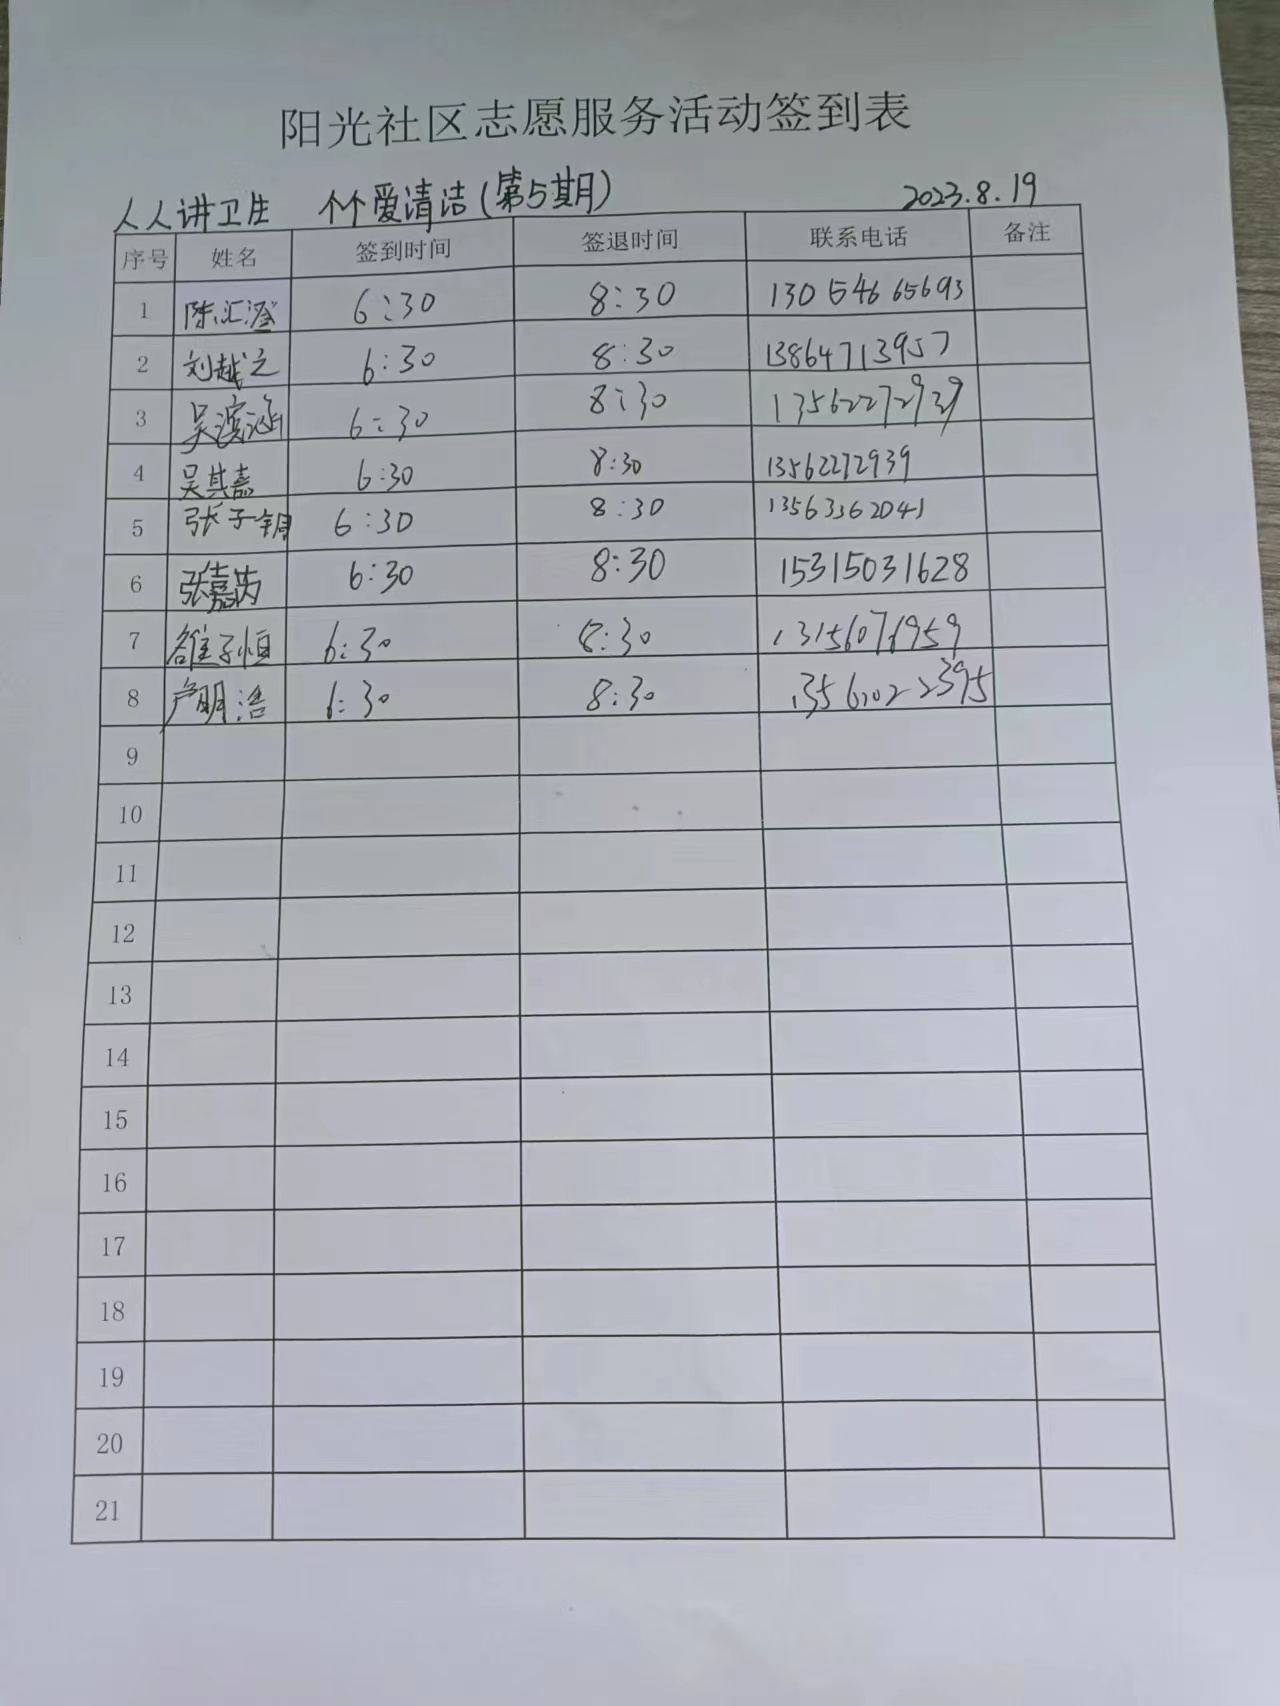 阳光社区志愿服务活动签到表
人人讲卫生 个个爱清洁(第5期) 2023.8.19
序号 姓名 签到时间 签退时间 联系电话 备注
1 陈汇澄 6:30 8:30 13054665693
2 刘越之 6:30 8:30 13864713957
3 吴滨涵 6:30 8:30 13562272939
4 吴其嘉 6:30 8:30 13562272939
5 张子钥 6:30 8:30 13563362041
6 张嘉芮 6:30 8:30 15315031628
7 子恒 6:30 8:30
8 卢明浩 6:30 8:30
9
10
11
12
13
14
15
16
17
18
19
20
21